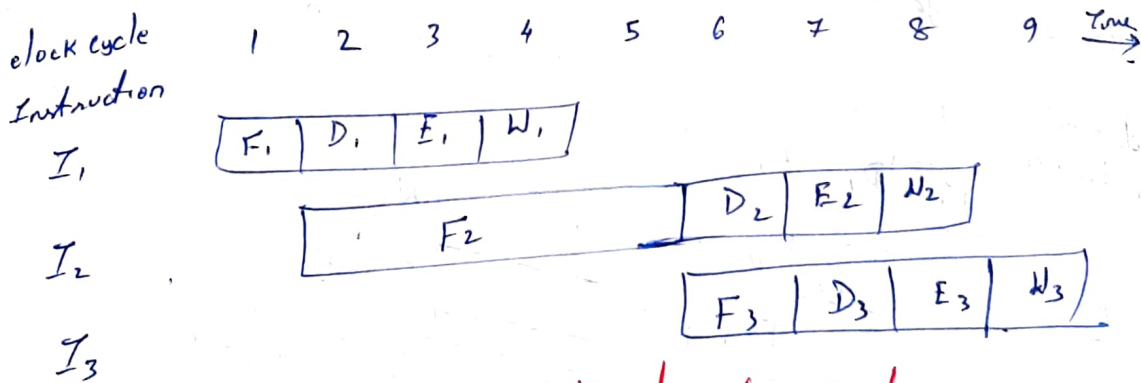 clock cycle 1 2 3 4 5 6 7 8 9 Time
Instruction
I₁ F₁ D₁ E₁ W₁
I₂ F₂ D₂ E₂ W₂
I₃ F₃ D₃ E₃ W₃